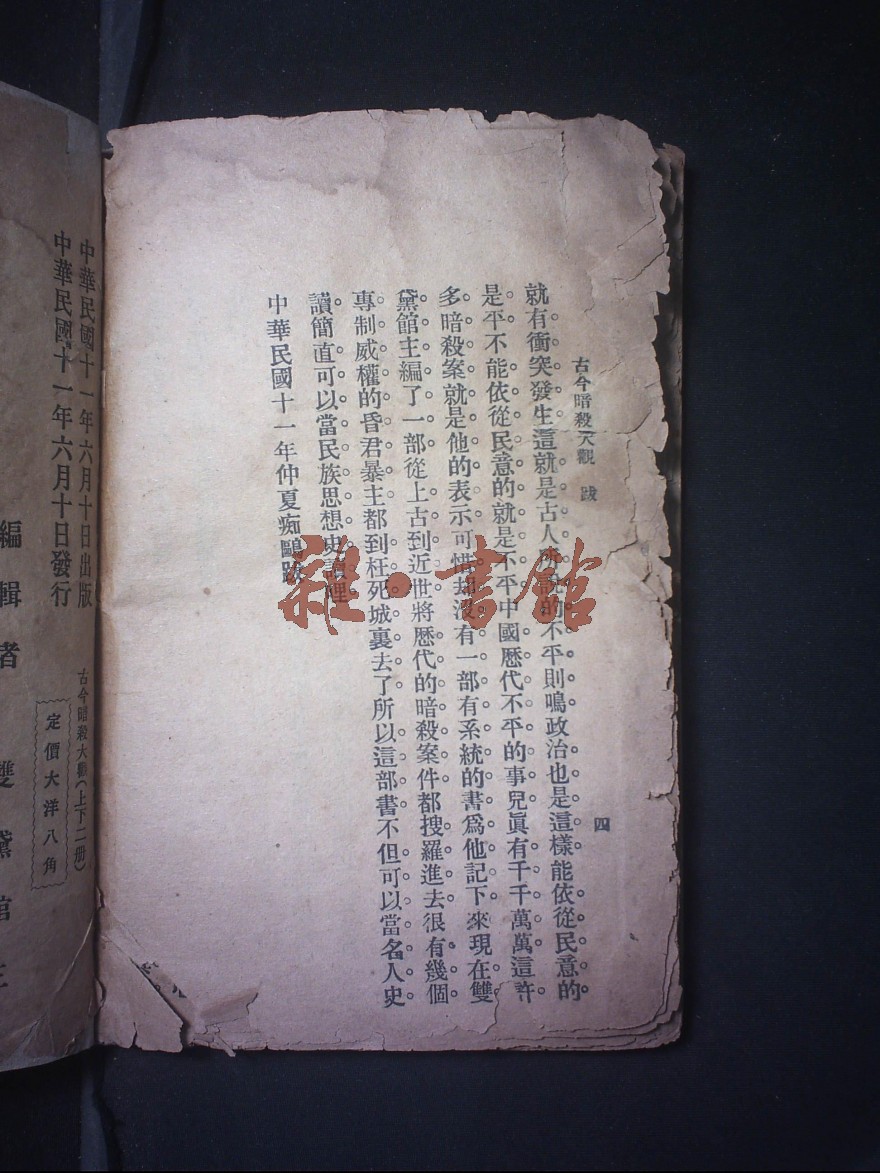 古今暗殺大觀　跋
四
就有衝突發生這就是古人所說的不平則鳴政治也是這樣能依從民意的
是平不能依從民意的就是不平中國歷代不平的事兒眞有千千萬萬這許
多暗殺案就是他的表示可惜却沒有一部有系統的書爲他記下來現在雙
黛館主編了一部從上古到近世將歷代的暗殺案件都搜羅進去很有幾個
專制威權的昏君暴主都到枉死城裏去了所以這部書不但可以當名人史
讀簡直可以當民族思想史讀哩
中華民國十一年仲夏痴鷗跋
雜·書館
中華民國十一年六月十日出版
中華民國十一年六月十日發行
古今暗殺大觀（上下二册）
定價大洋八角
編輯者　雙黛館主